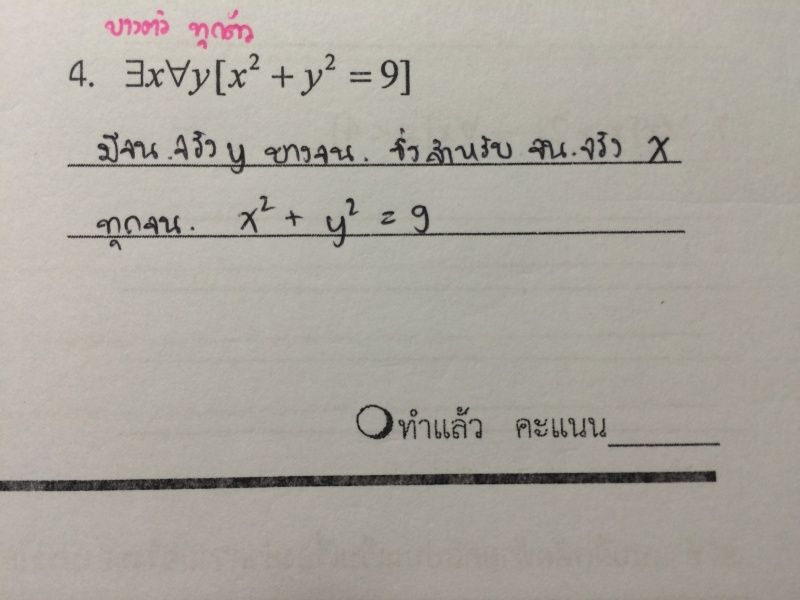 บางตัว ทุกตัว
4. ∃x∀y[x² + y² = 9]
มีจน.จริง y บางจน. ซึ่งสำหรับ จน.จริง x
ทุกจน. x² + y² = 9
ทำแล้ว คะแนน